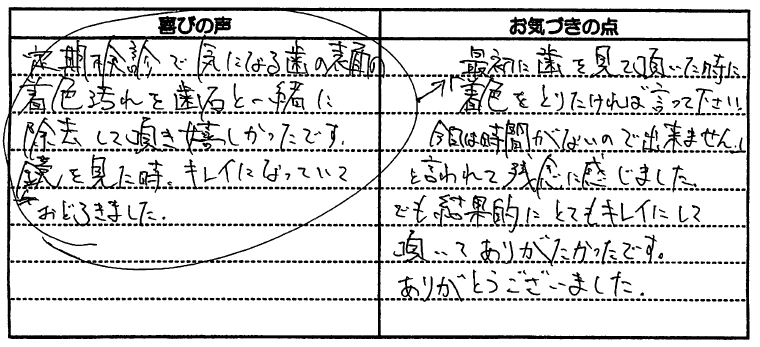 喜びの声
定期検診で気になる歯の表面の
着色汚れを歯石と一緒に
除去して頂き嬉しかったです。
鏡を見た時。キレイになっていて
おどろきました。
お気づきの点
最初に歯を見て頂いた時に
「着色をとりたければ言って下さい。
今日は時間がないので出来ません」
と言われて残念に感じました。
でも結果的にとてもキレイにして
頂いてありがたかったです。
ありがとうございました。